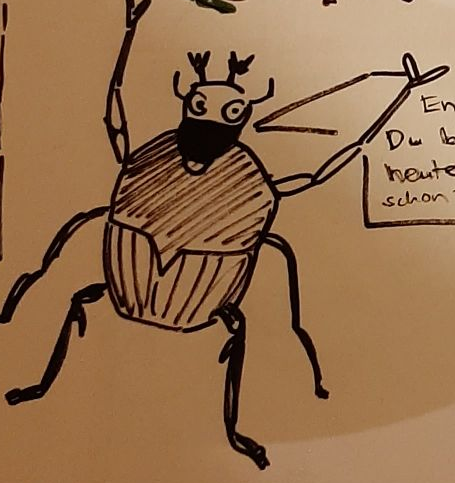 En
Du b
heute
schon